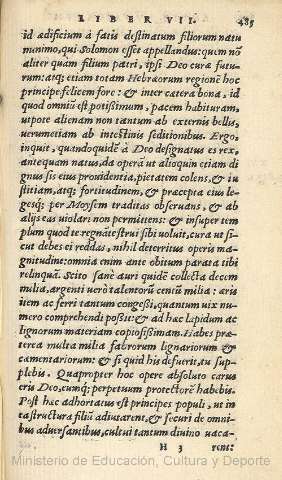 LIBER VII. 485
id ædificium à fatis destinatum filiorum natu
minimo, qui Solomon esset appellandus: quem nō
aliter quam filium patri, ipsi Deo curæ futu-
rum: atq; etiam totam Hebræorum regionē hoc
principe felicem fore: & inter cætera bona, id
quod omniū est potissimum, pacem habituram,
utpote alienam non tantum ab externis bellis,
verumetiam ab intestinis seditionibus. Ergo,
inquit, quandoquidē à Deo designatus es rex,
antequam natus, da operā ut alioquin etiam di
gnus sis eius providentia, pietatem colens, & iu
stitiam, atq; fortitudinem, & præcepta eius le-
gesq; per Moysem traditas observans, & ab
alijs eas violari non permittens: & insuper tem
plum quod te regnāte strui sibi voluit, cura ut si-
cut debes ei reddas, nihil deterritus operis ma-
gnitudine: omnia enim ante obitum parata tibi
relinquā. Scito sanè auri quidē collecta decem
milia, argenti verò talentorū centū milia: æris
item ac ferri tantum congessi, quantum vix nu-
mero comprehendi possit: & ad hæc lapidum ac
lignorum materiam copiosissimam. Habes præ-
terea multa milia fabrorum lignariorum &
cæmentariorum: & si quid his defuerit, tu sup-
plebis. Quapropter hoc opere absoluto carus
eris Deo, eumq; perpetuum protectorē habebis.
Post hæc adhortatus est principes populi, ut in
ea structura filiū adiutarent, & securi de omni-
bus adversantibus, cultui tantum divino vaca-
H 3 rent:
Ministerio de Educación, Cultura y Deporte